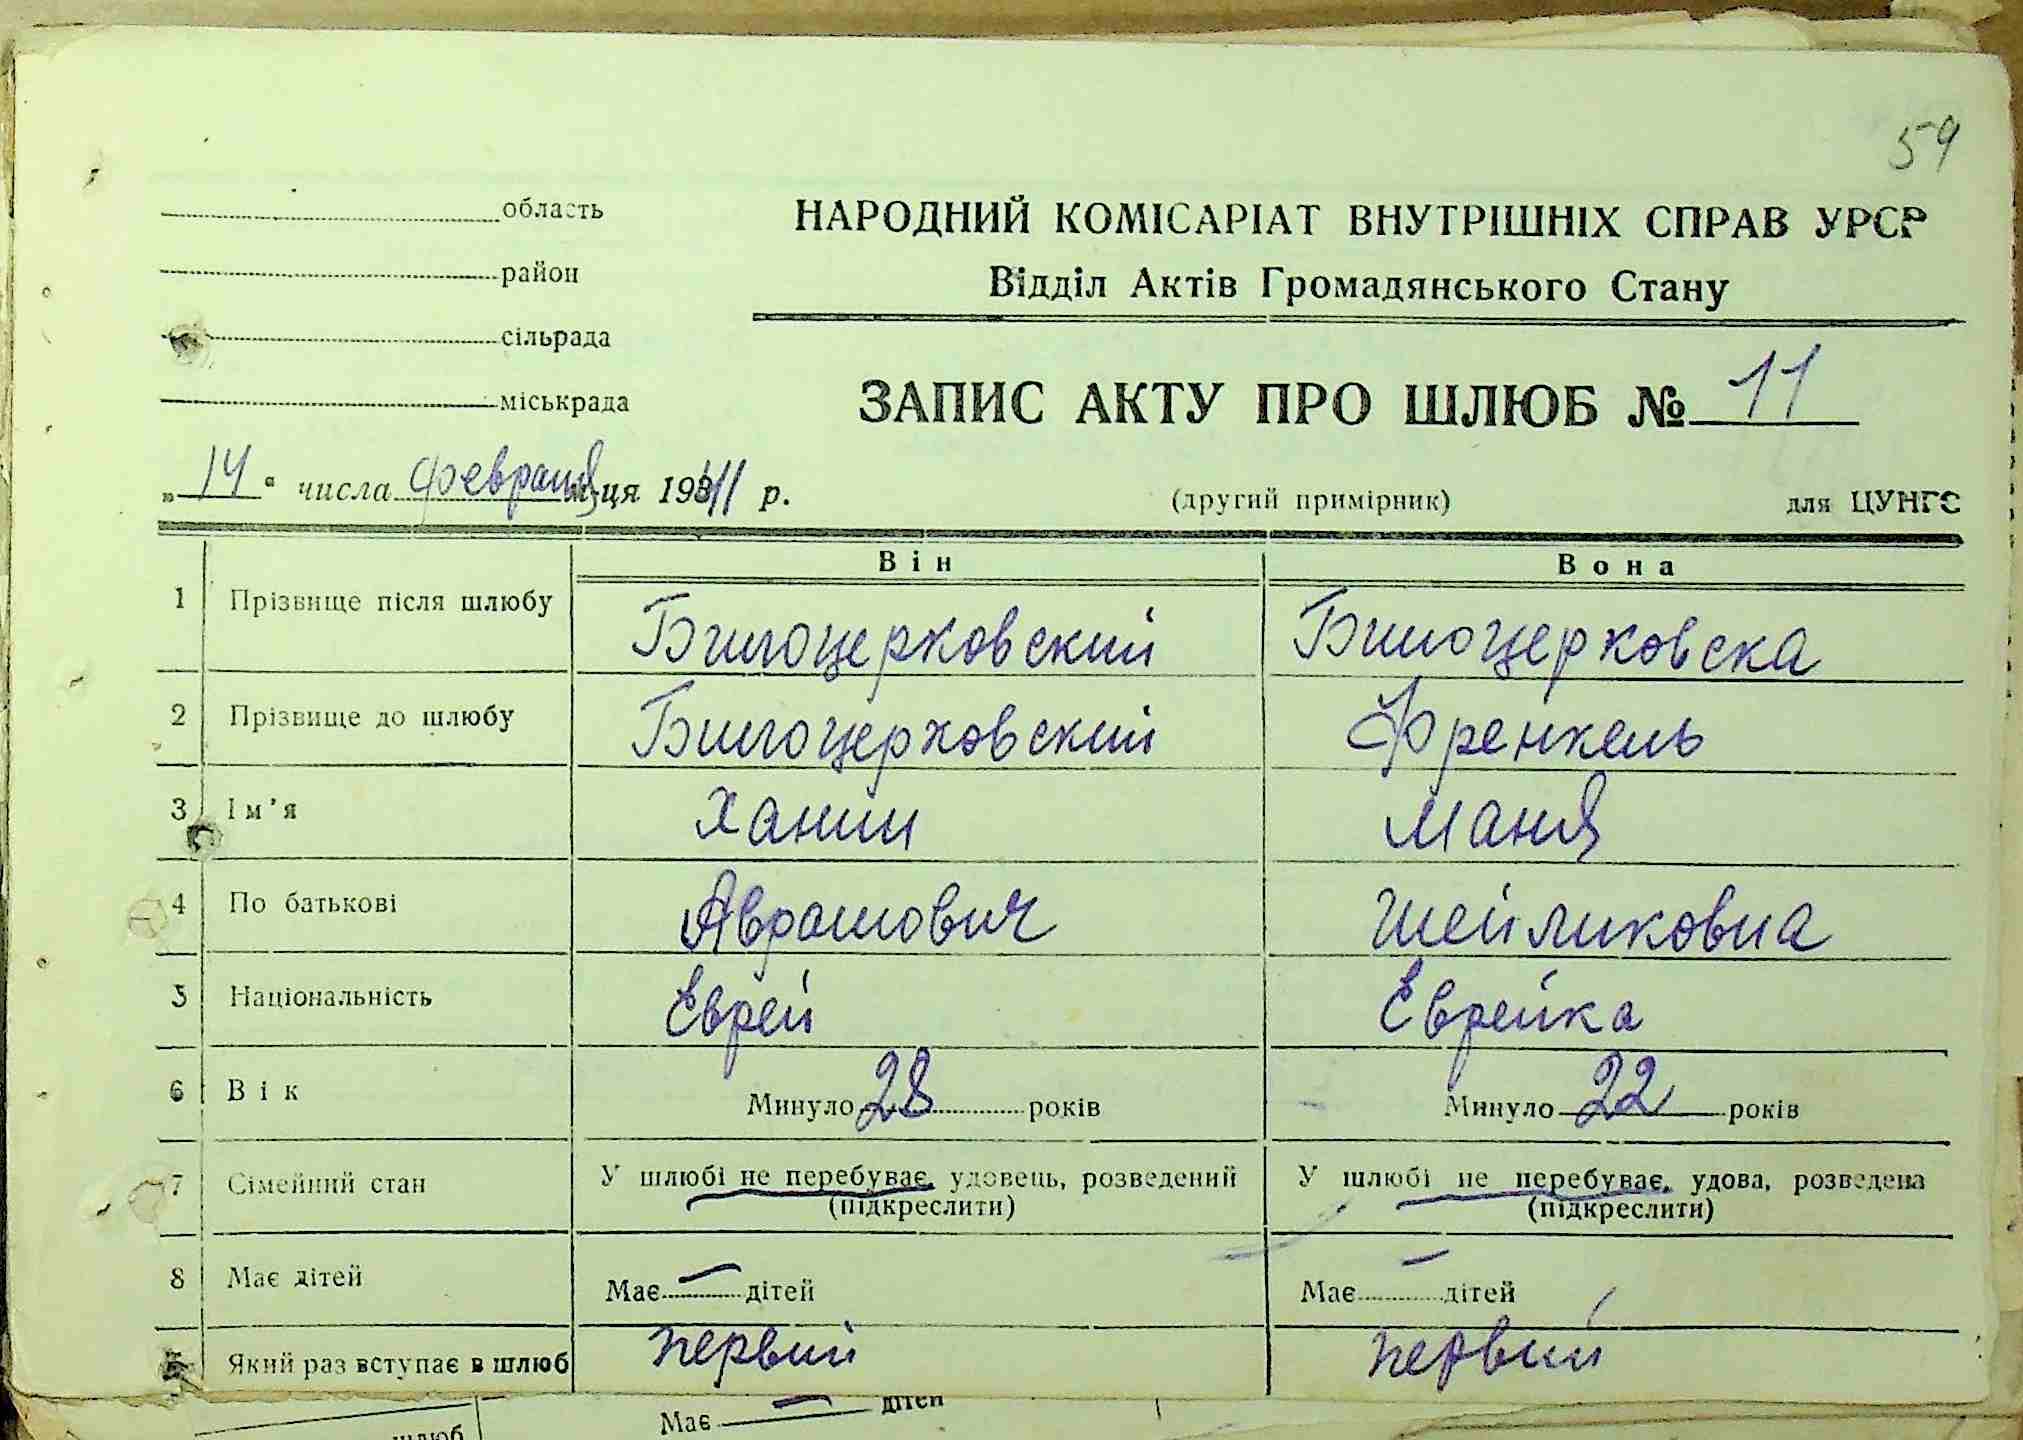 59
область
район
сільрада
міськрада
НАРОДНИЙ КОМІСАРІАТ ВНУТРІШНІХ СПРАВ УРСР
Відділ Актів Громадянського Стану
ЗАПИС АКТУ ПРО ШЛЮБ № 11
„14“ числа февраля м-ця 1941 р.
(другий примірник) для ЦУНГС
Він Вона
1 Прізвище після шлюбу Билоцерковский Билоцерковска
2 Прізвище до шлюбу Билоцерковский Френкель
3 Ім'я Хаким Маня
4 По батькові Аврамович Шейликовна
5 Національність Еврей Еврейка
6 Вік Минуло 28 років Минуло 22 років
7 Сімейний стан У шлюбі не перебуває, удовець, розведений У шлюбі не перебуває, удова, розведена
(підкреслити) (підкреслити)
8 Має дітей Має — дітей Має — дітей
Який раз вступає в шлюб первий первий
Має — дітей
шлюб